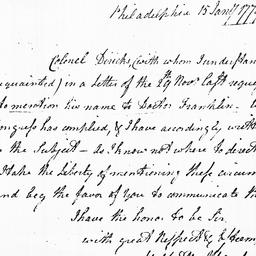 Philadelphia 15 Jany 177
Colonel Diricks (with whom I understan
quainted) in a letter of the 29 Novr last reque
to mention his name to Doctor Franklin
ongress has complied, & I have accordingly writt
the Subject as I know not where to direct
I take the Liberty of mentioning these circum
and beg the favor of you to communicate th
I have the honor to be Sir
with great Respect &